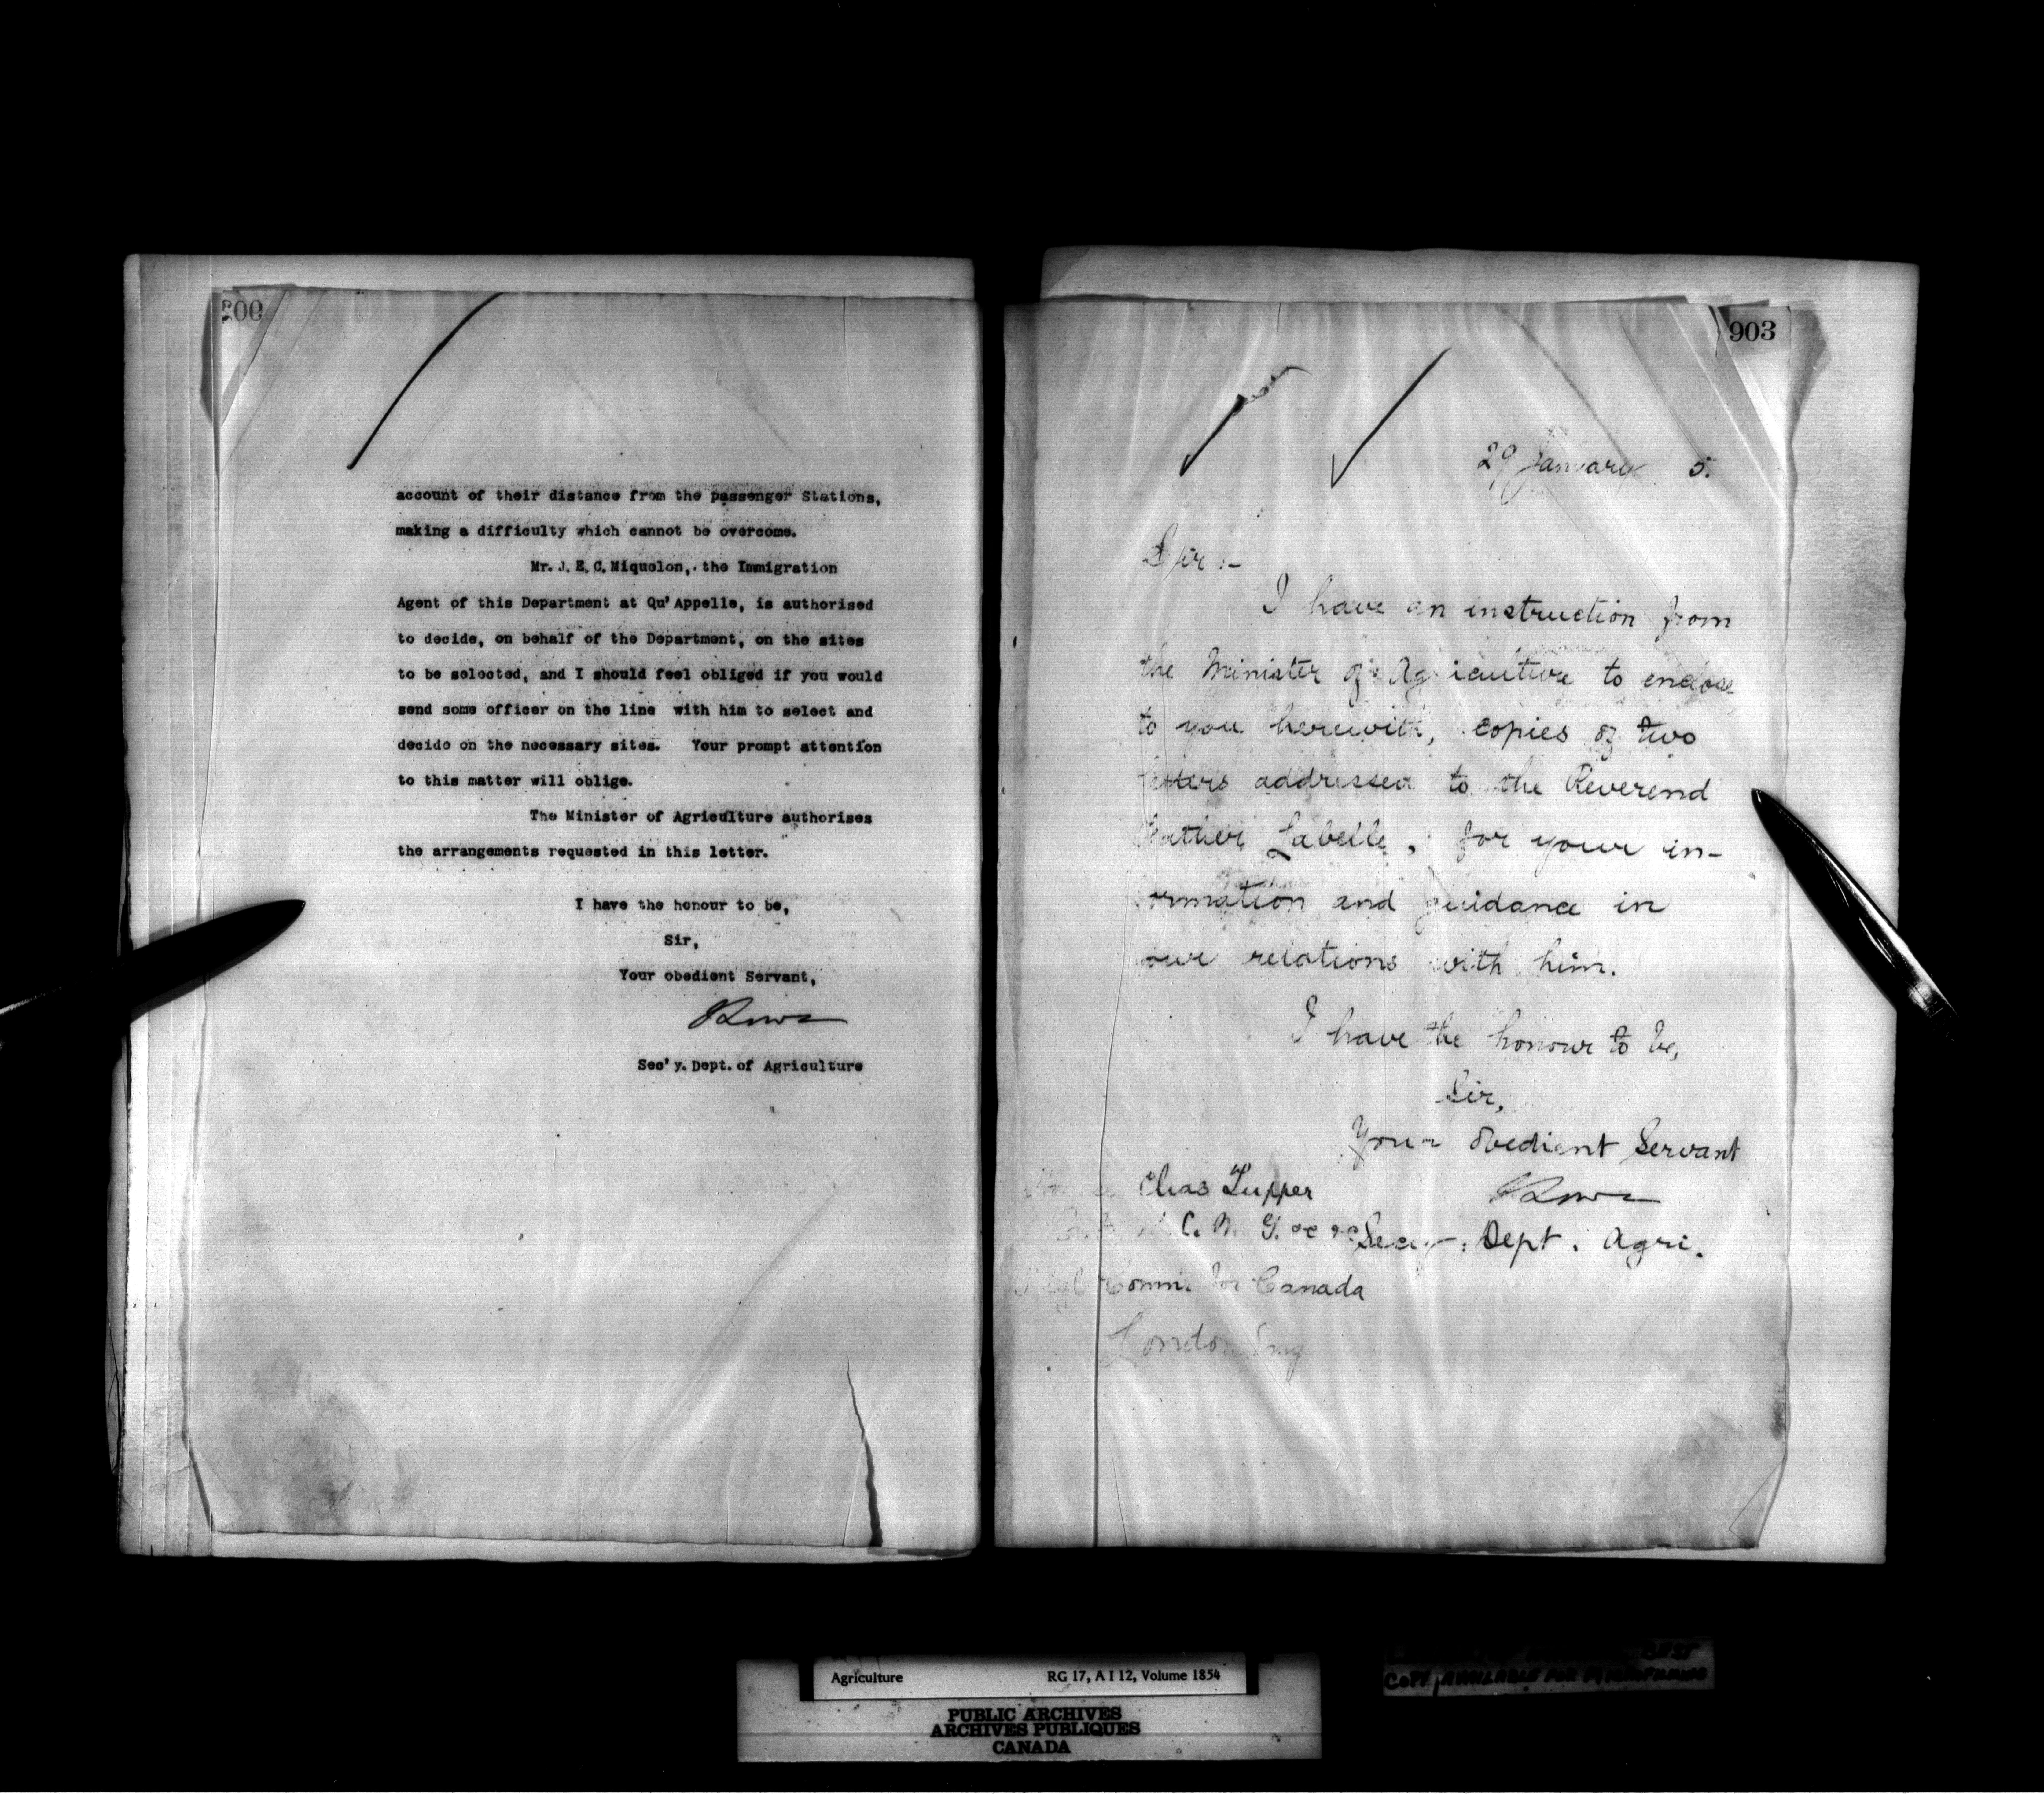 account of their distance from the passenger Stations,
making a difficulty which cannot be overcome.
Mr. J. E. C. Miquelon, the Immigration
Agent of this Department at Qu'Appelle, is authorised
to decide, on behalf of the Department, on the sites
to be selected, and I should feel obliged if you would
send some officer on the line with him to select and
decide on the necessary sites. Your prompt attention
to this matter will oblige.
The Minister of Agriculture authorises
the arrangements requested in this letter.
I have the honour to be,
Sir,
Your obedient Servant,
Sec'y. Dept. of Agriculture
903
29 January 5.
Sir :-
I have an instruction from
the Minister of Agriculture to enclose
to you herewith, copies of two
letters addressed to the Reverend
Father Labelle, for your in-
formation and guidance in
your relations with him.
I have the honour to be,
Sir,
Your obedient Servant
Chas Tupper
C. M. G. &c &c
Secy. Dept. Agri.
Comm. for Canada
London Eng
Agriculture RG 17, A I 12, Volume 1854
PUBLIC ARCHIVES
ARCHIVES PUBLIQUES
CANADA
COPY AVAILABLE FOR